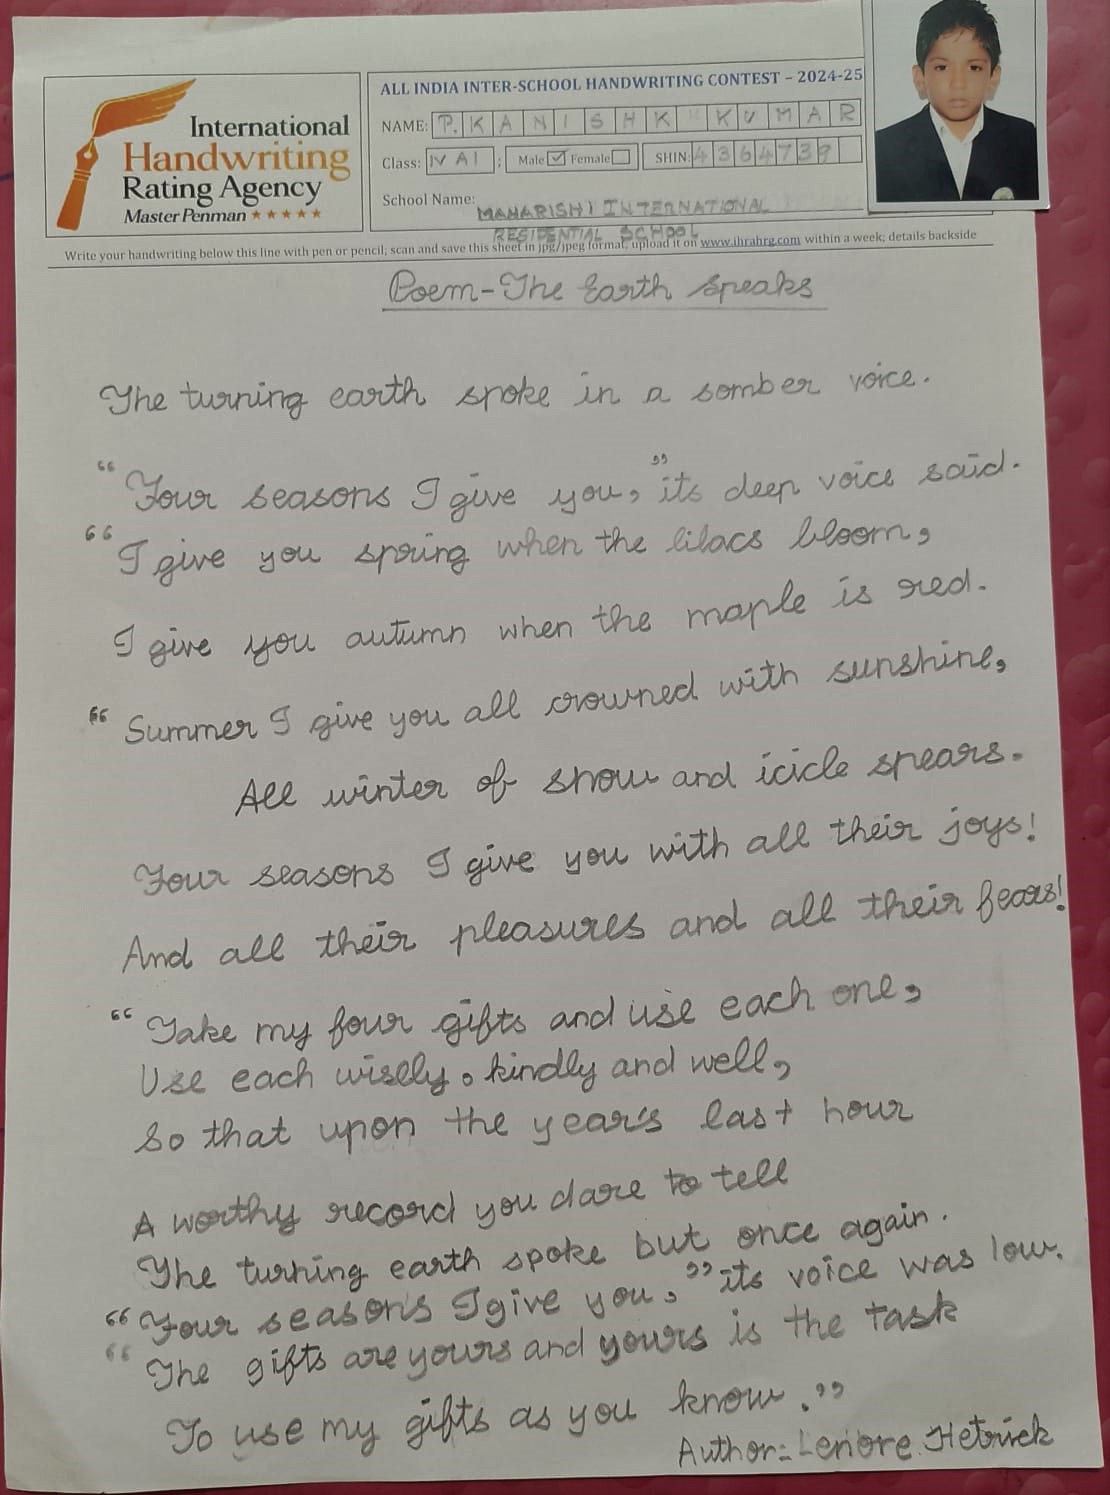 International
Handwriting
Rating Agency
Master Penman ★★★★★
ALL INDIA INTER-SCHOOL HANDWRITING CONTEST – 2024-25
NAME: P. KANISHK KUMAR
Class: IV A1 ; Male ☑ Female ☐ SHIN: 4364739
School Name: MAHARISHI INTERNATIONAL
RESIDENTIAL SCHOOL
Write your handwriting below this line with pen or pencil; scan and save this sheet in jpg/jpeg format; upload it on www.ihrahrg.com within a week; details backside
Poem-The Earth Speaks
The turning earth spoke in a somber voice.
“Four seasons I give you,” its deep voice said.
“I give you spring when the lilacs bloom,
I give you autumn when the maple is red.
“Summer I give you all crowned with sunshine,
All winter of snow and icicle spears.
Four seasons I give you with all their joys!
And all their pleasures and all their fears!
“Take my four gifts and use each one,
Use each wisely. kindly and well,
So that upon the year's last hour
A worthy record you dare to tell
The turning earth spoke but once again.
“Four seasons I give you,” its voice was low.
“The gifts are yours and yours is the task
To use my gifts as you know.”
Author:- Lenore Hetrick